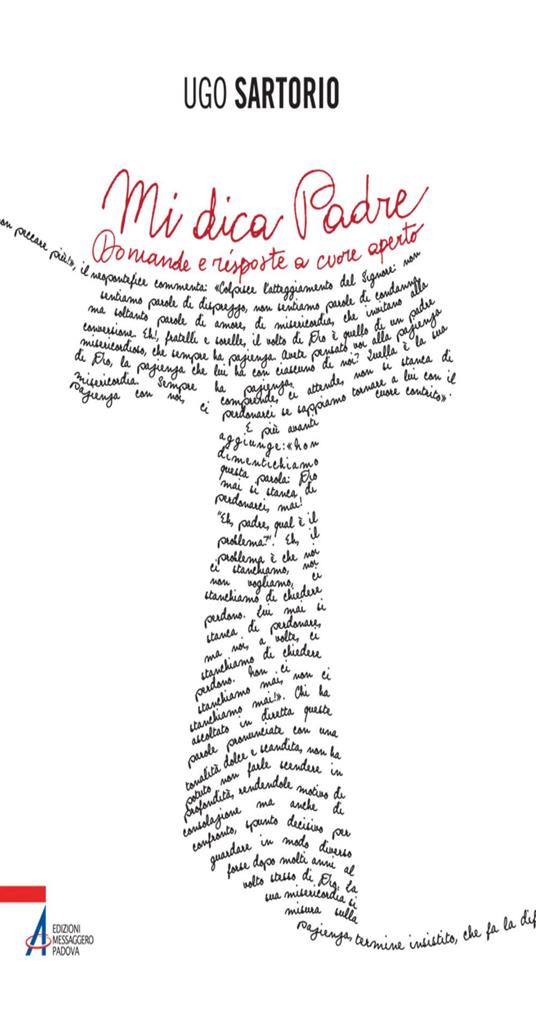 UGO SARTORIO
Mi dica Padre
Domande e risposte a cuore aperto
on peccare più!», il neopontefice commenta: «Colpisce l'atteggiamento del Signore: non
sentiamo parole di disprezzo, non sentiamo parole di condanna,
ma soltanto parole di amore, di misericordia, che invitano alla
conversione. Eh!, fratelli e sorelle, il volto di Dio è quello di un padre
misericordioso, che sempre ha pazienza. Avete pensato voi alla pazienza
di Dio, la pazienza che lui ha con ciascuno di noi? Quella è la sua
misericordia. Sempre ha pazienza,
pazienza con noi, ci comprende, ci attende, non si stanca di
perdonarci se sappiamo tornare a lui con il
cuore contrito».
E più avanti
aggiunge: «Non
dimentichiamo
questa parola: Dio
mai si stanca di
perdonarci, mai!
"Eh, padre, qual è il
problema?". Eh, il
problema è che noi
ci stanchiamo, noi
non vogliamo, ci
stanchiamo di chiedere
perdono. Lui mai si
stanca di perdonare,
ma noi, a volte, ci
stanchiamo di chiedere
perdono. Non ci
stanchiamo mai, non ci
stanchiamo mai!». Chi ha
ascoltato in diretta queste
parole pronunciate con una
tonalità dolce e scandita, non ha
potuto non farle scendere in
profondità, rendendole motivo di
consolazione ma anche di
confronto, spunto decisivo per
guardare in modo diverso
forse dopo molti anni al
volto stesso di Dio: la
sua misericordia si
misura sulla
pazienza, termine insistito, che fa la dif
EDIZIONI
MESSAGGERO
PADOVA